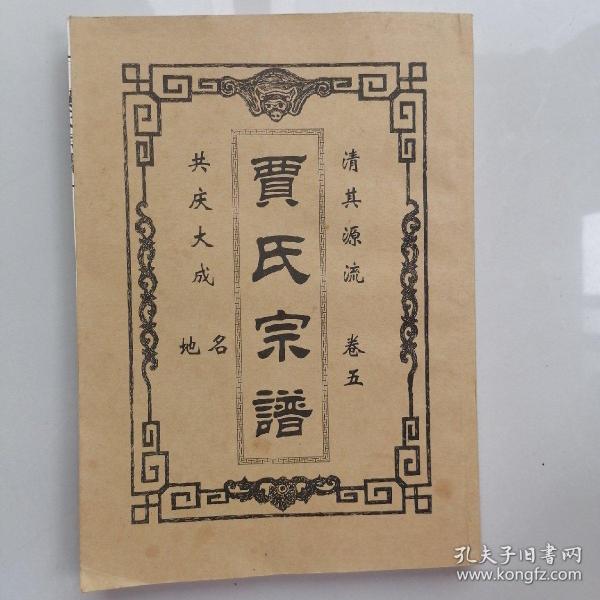 清其源流 卷五
賈氏宗譜
共庆大成
地名
孔夫子旧书网
www.kongfz.com